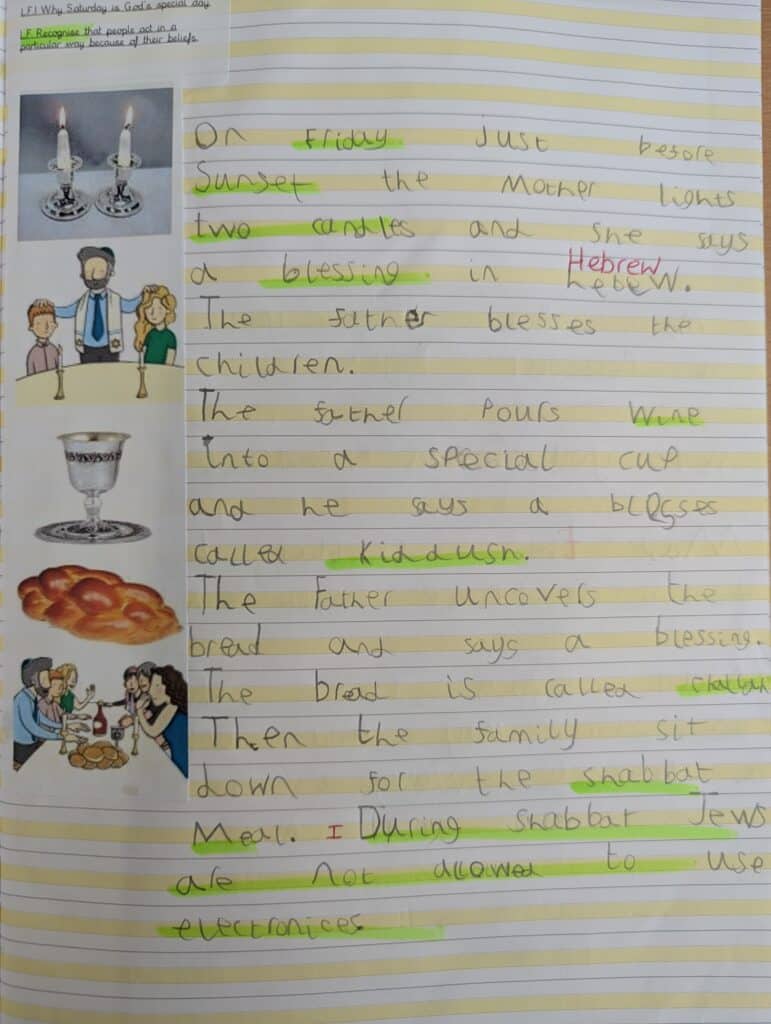 LF1 Why Saturday is God's special day
LF Recognise that people act in a
particular way because of their beliefs.
On Friday just before
Sunset the Mother lights
two candles and she says
a blessing in Hebrew
hebeW.
The father blesses the
children.
The father Pours wine
into a special cup
and he says a blesses
called Kiddush.
The Father uncovers the
bread and says a blessing.
The bread is called challah
Then the family sit
down for the shabbat
Meal. I During shabbat Jews
are not allowed to use
electronices